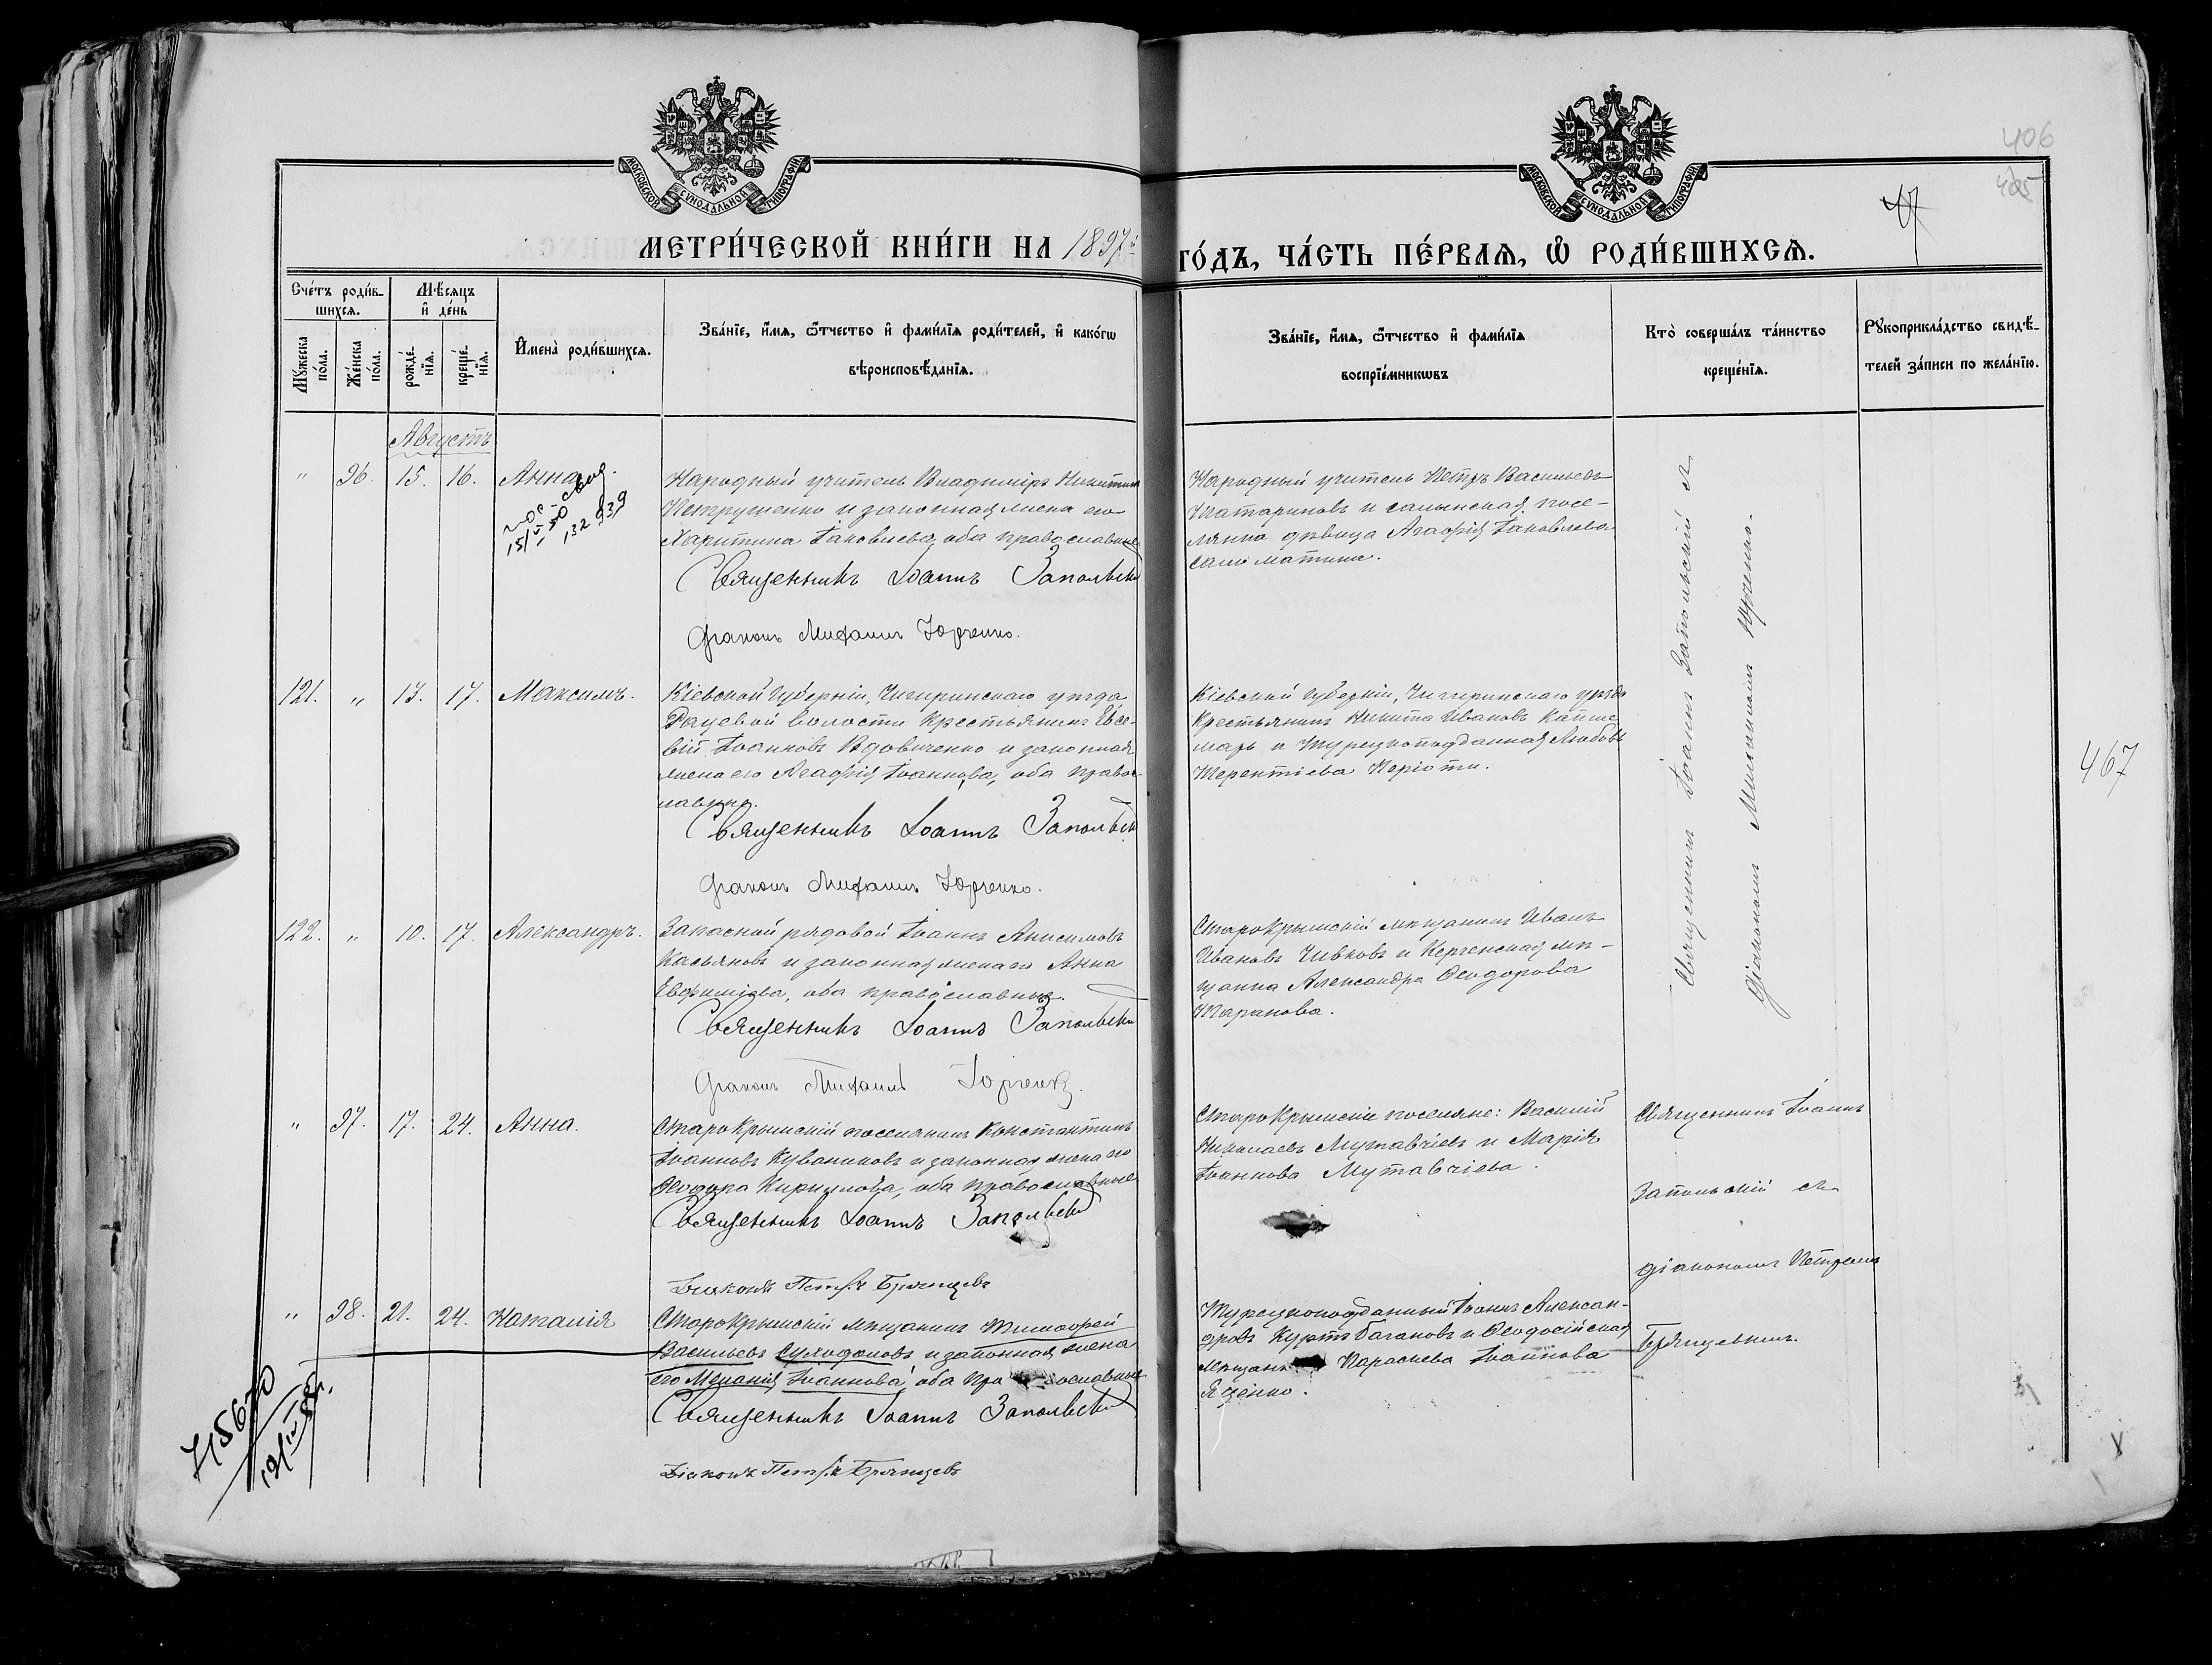 МОСКОВСКОЙ СѴНОДАЛЬНОЙ ТИПОГРАФІИ
МОСКОВСКОЙ СѴНОДАЛЬНОЙ ТИПОГРАФІИ
406
405
47
МЕТРИ́ЧЕСКОЙ КНИ́ГИ НА 1897й ГО́ДЪ, ЧА́СТЬ ПЕ́РВАѦ, Ѡ РОДИ́ВШИХСѦ.
Сче́тъ роди́в-
шихсѧ.
Мѣ́сѧцъ
и де́нь
Мꙋ́жеска
по́ла.
Же́нска
по́ла.
рожде́-
нїѧ.
креще́-
нїѧ.
И҆мена̀ роди́вшихсѧ.
Зва́нїе, и҆́мѧ, ѻ҆́тчество и҆ фами́лїѧ роди́телей, и҆ како́гѡ
вѣроисповѣ́данїѧ.
Зва́нїе, и҆́мѧ, ѻ҆́тчество и҆ фами́лїѧ
воспрїе́мникѡвъ
Кто̀ соверша́лъ та́инство
креще́нїѧ.
Рꙋкоприкла́дство свидѣ́-
телей за́писи по жела́нїю.
Августъ
" 96. 15. 16. Анна.
15/V-50
132939
Народный учитель Владиміръ Никитинъ
Петрушенко и законная жена его
Харитина Іаковлева, оба православные
Священникъ Іоаннъ Запольскій
Діаконъ Михаилъ Юрченко.
Народный учитель Петръ Васильевъ
Татариновъ и салынская посе-
лянка дѣвица Агафія Іаковлева
Саломатина.
121. " 13. 17. Максимъ.
Кіевской губерніи, Чигиринскаго уѣзда
Рацевой волости крестьянинъ Евсе-
вій Іоанновъ Вдовиченко и законная
жена его Агафія Іоаннова, оба правос-
лавные.
Священникъ Іоаннъ Запольскій
Діаконъ Михаилъ Юрченко.
Кіевской губерніи, Чигиринскаго уѣзда
крестьянинъ Никита Ивановъ
и турецкоподданная Любовь
Терентіева Періоти.
467
122. " 10. 17. Александръ.
Запасной рядовой Іоаннъ Анисимовъ
Касьяновъ и законная жена его Анна
Евфиміева, оба православные.
Священникъ Іоаннъ Запольскій
Діаконъ Михаилъ Юрченко.
Старокрымскій мѣщанинъ Иванъ
Ивановъ Чивковъ и Керченская мѣ-
щанка Александра Ѳеодорова
Таранова.
Священникъ Іоаннъ Запольскій съ
діакономъ Михаиломъ Юрченко.
" 97. 17. 24. Анна.
Старокрымскій поселянинъ Константинъ
Іоанновъ Куваниковъ и законная жена его
Ѳеодора Кириллова, оба православные
Священникъ Іоаннъ Запольскій
Діаконъ Петръ Брянцевъ
Старокрымскіе поселяне: Василій
Николаевъ Мутавчіевъ и Марія
Іоаннова Мутавчіева.
Священникъ Іоаннъ
Запольскій съ
діакономъ Петромъ
Брянцевымъ.
" 98. 21. 24. Наталія
Старокрымскій мѣщанинъ Тимофей
Васильевъ Суходоловъ и законная жена
его Меланія Іоаннова, оба православные
Священникъ Іоаннъ Запольскій
Діаконъ Петръ Брянцевъ
Турецкоподданный Іоаннъ Алексан-
дровъ Куртъ Багановъ и Ѳеодосійская
мѣщанка Параскева Іоаннова
Яценко.